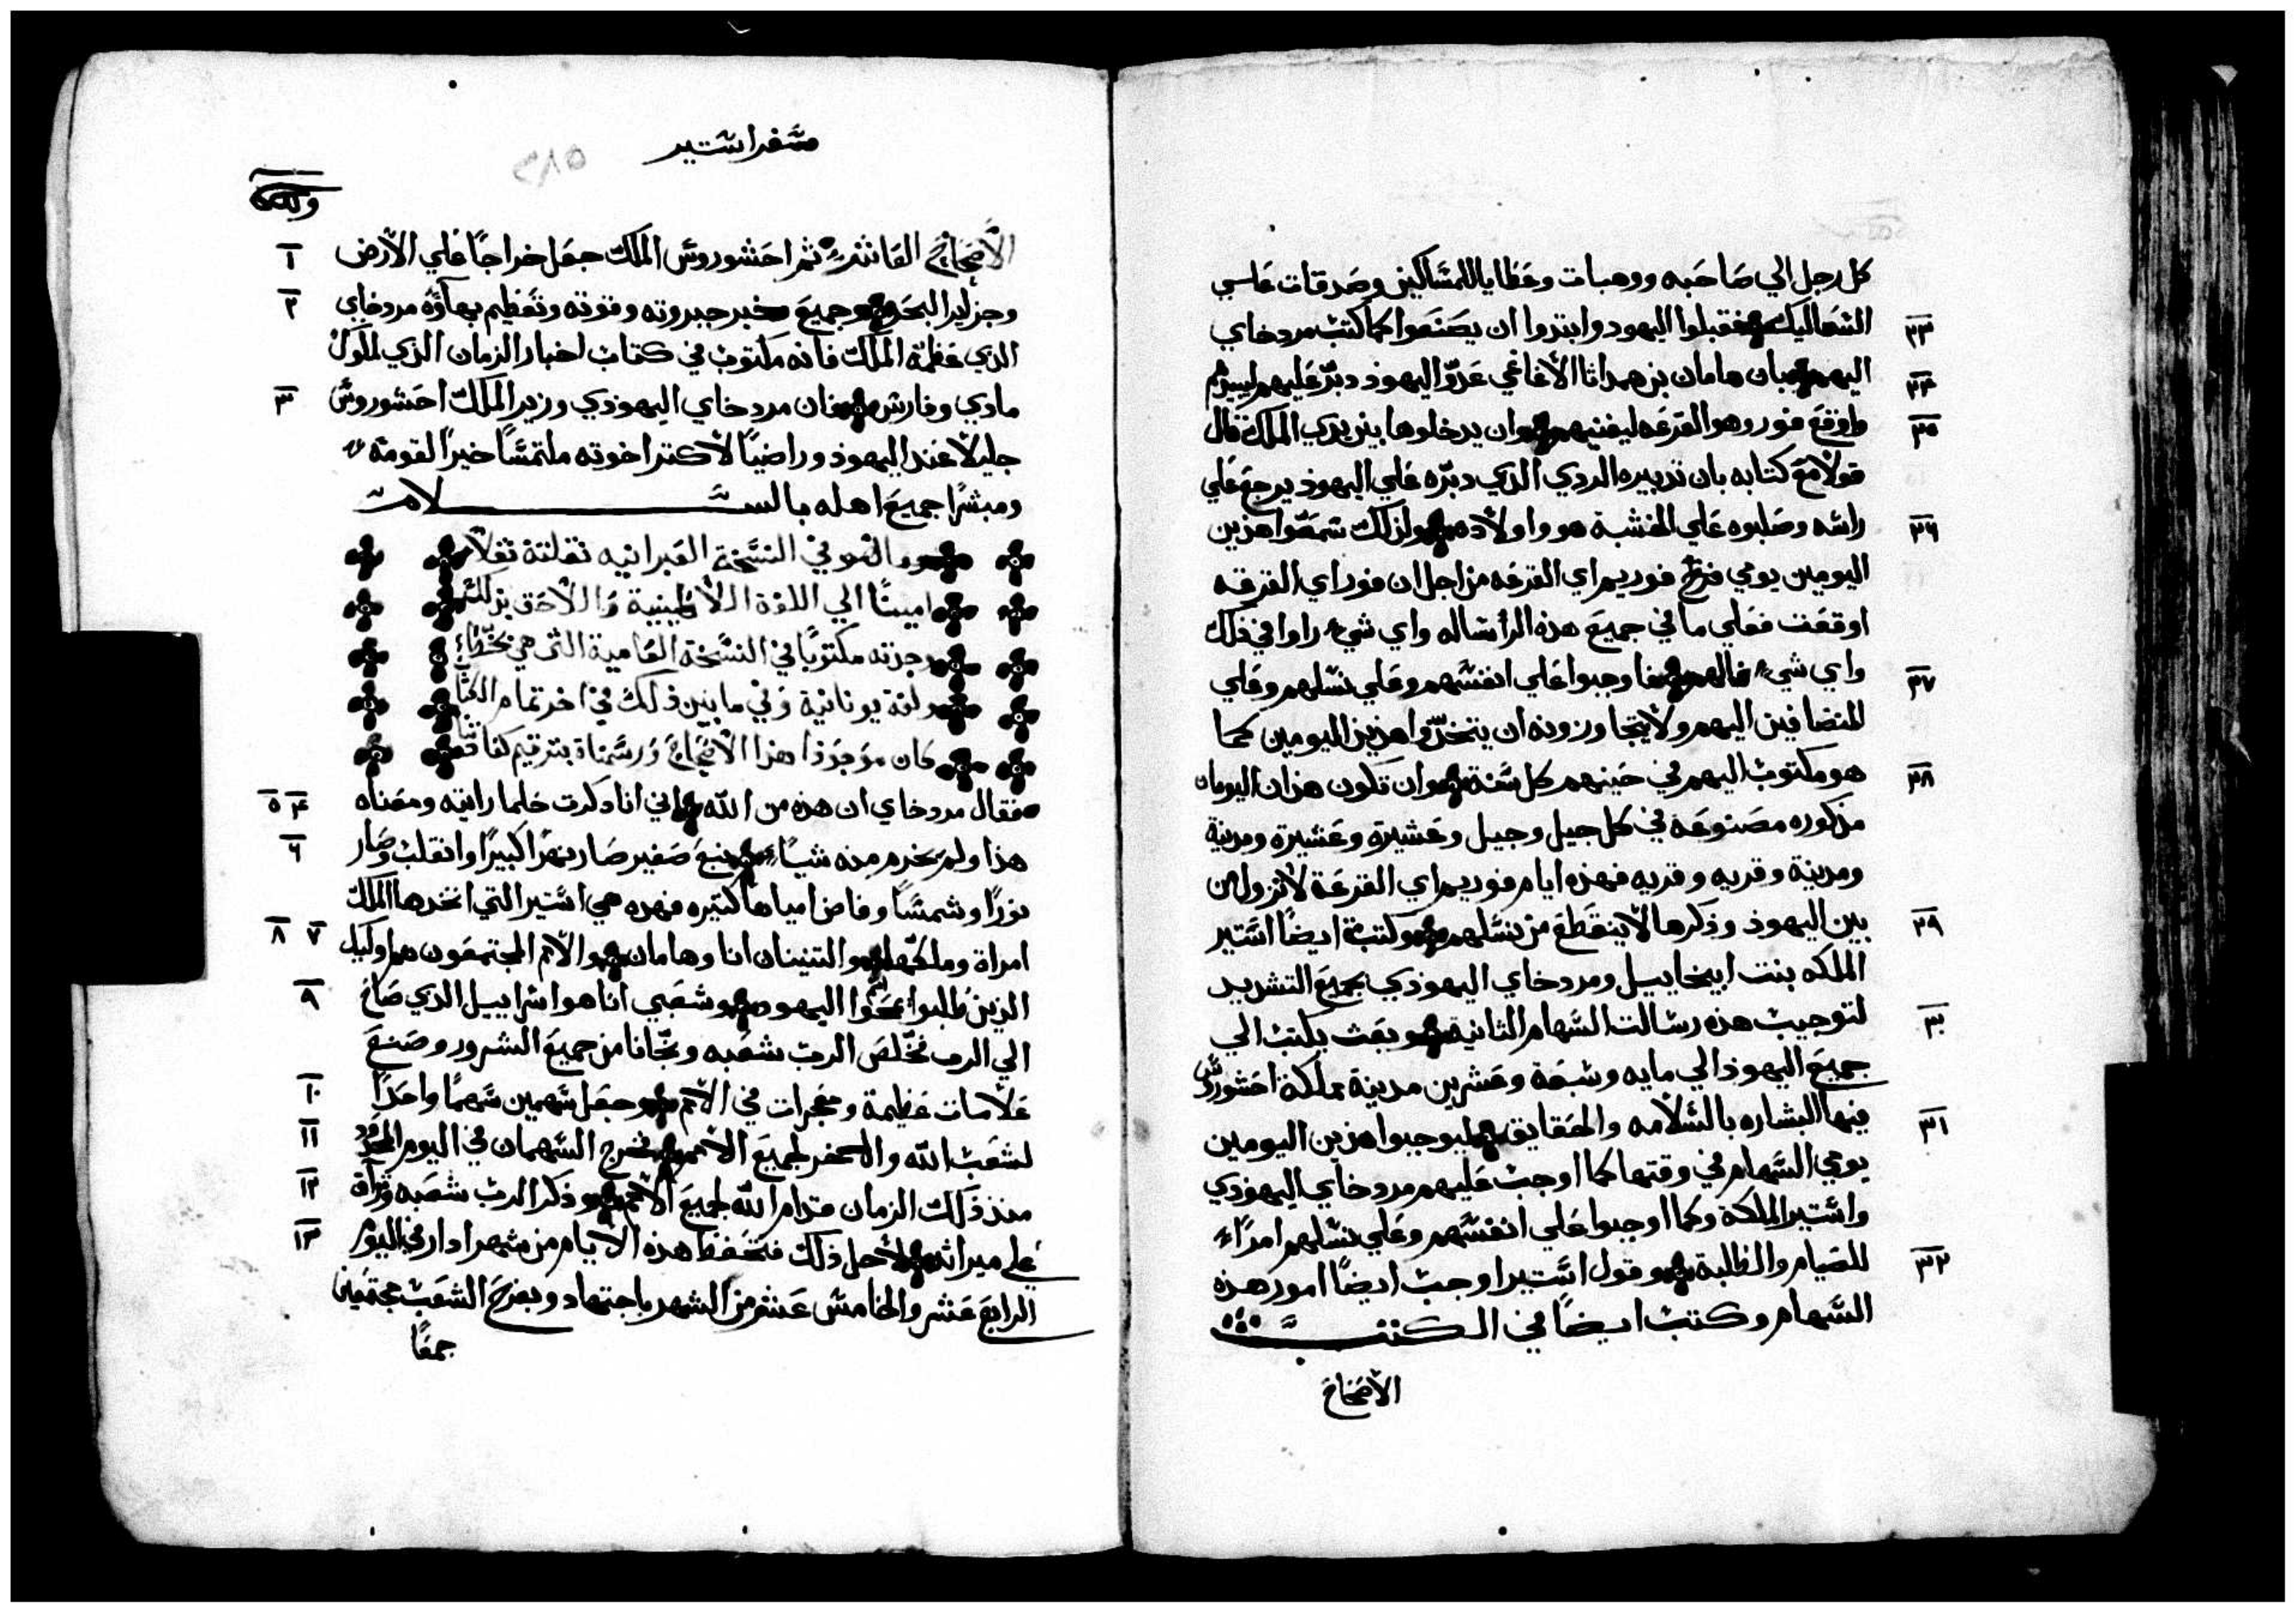 كل رجل الي صاحبه ووهبات وعطايا للمساكين وصدقات علي
٢٣ الصعاليك فقبلوا اليهود وابتدوا ان يصنعوا كما كتب مردخاي
٢٤ اليهم بان هامان بن همداثا الاغاغي عدوّ اليهود دبّر عليهم ليبيدهم
٢٥ واوقع فور وهو القرعه ليفنيهم وان يدخلوها بين يدي الملك قال
قولا مع كتابه بان تدبيره الردي الذي دبّره علي اليهود يرجع علي
٢٦ راسه وصلبوه علي الخشبة هو واولاده ولذلك سمّوا هذين
اليومين يومي فوريم اي القرعه من اجل ان فور اي القرعه
اوقعت فعلي ما في جميع هذه الرساله واي شيء راوا في ذلك
٢٧ واي شيء نالهم فاوجبوا علي انفسهم وعلي نسلهم وعلي
المنضافين اليهم ولا يتجاوزونه ان يتخذوا هذين اليومين كما
٢٨ هو مكتوب اليهم في حينهم كل سنة وان تكون هذان اليومان
مذكوره مصنوعه في كل جيل وجيل وعشيرة وعشيرة ومدينة
ومدينة وقريه وقريه فهذه ايام فوريم اي القرعة لا تزول من
٢٩ بين اليهود وذكرها لا ينقطع من نسلهم وكتبت ايضا استير
الملكه بنت ابيخاييل ومردخاي اليهودي بجميع التشديد
٣٠ لتوجيب هذه رسالت السهام الثانية وبعث بكتب الي
جميع اليهود الي مايه وسبعة وعشرين مدينة مملكة احشوروش
٣١ فيها البشاره بالسلامه والحقايق ليوجبوا هذين اليومين
يومي السهام في وقتها كما اوجب عليهم مردخاي اليهودي
واستير الملكة وكما اوجبوا علي انفسهم وعلي نسلهم امرا
٣٢ للصيام والطلبة وقول استير اوجب ايضا امور هذه
السهام وكتب ايضا في الكتب
الاصحاح
سفر استير
٢٨٥
١ الاصحاح العاشر ثم احشوروش الملك جعل خراجا علي الارض
٢ وجزاير البحر وجميع خبر جبروته وقوته وتعظيم بهاؤه مردخاي
الذي عظمة الملك فانه مكتوب في كتاب اخبار الزمان الذي لملوك
٣ مادي وفارس فان مردخاي اليهودي وزير الملك احشوروش
جليلا عند اليهود وراضيا لاكثر اخوته ملتمسا خيرا لقومة
ومبشرا جميع اهله بالسلامة
وما هو في النسخة العبرانيه نقلتة نقلا
امينا الي اللغة اللاطينية واللاحق بذلك
وجدته مكتوبا في النسخة العامية التي هي بخط
ولغة يونانية وفي ما بين ذلك في اخر تمام الكتاب
كان موجودا هذا الاصحاح ورسمناة بترقيم كعادتنا
٤ ٥ فقال مردخاي ان هذه من الله اني انا ذكرت حلما رايته ومعناه
٦ هذا ولم يخرم منه شيا ينبع صغير صار نهرا كبيرا وانقلب وصار
نورا وشمسا وفاض امياها كثيره فهذه هي استير التي اتخذها الملك
٧ ٨ امراة وملكها والتنينان انا وهامان والامم المجتمعون هم اوليك
٩ الذين طلبوا يمحوا اليهود وشعبي انا هو اسراييل الذي صاح
الي الرب فخلص الرب شعبه ونجانا من جميع الشرور وصنع
١٠ علامات عظيمة ومعجزات في الامم وجعل سهمين سهما واحدا
١١ لشعب الله والاخر لجميع الامم فخرج السهمان في اليوم المحدود
١٢ منذ ذلك الزمان قدام الله لجميع الامم وذكر الرب شعبه وترآف
١٣ علي ميراثه لاجل ذلك فتحفظ هذه الايام من شهر ادار في اليوم
الرابع عشر والخامس عشر من الشهر باجتهاد وبفرح الشعب مجتمعين
جمعا